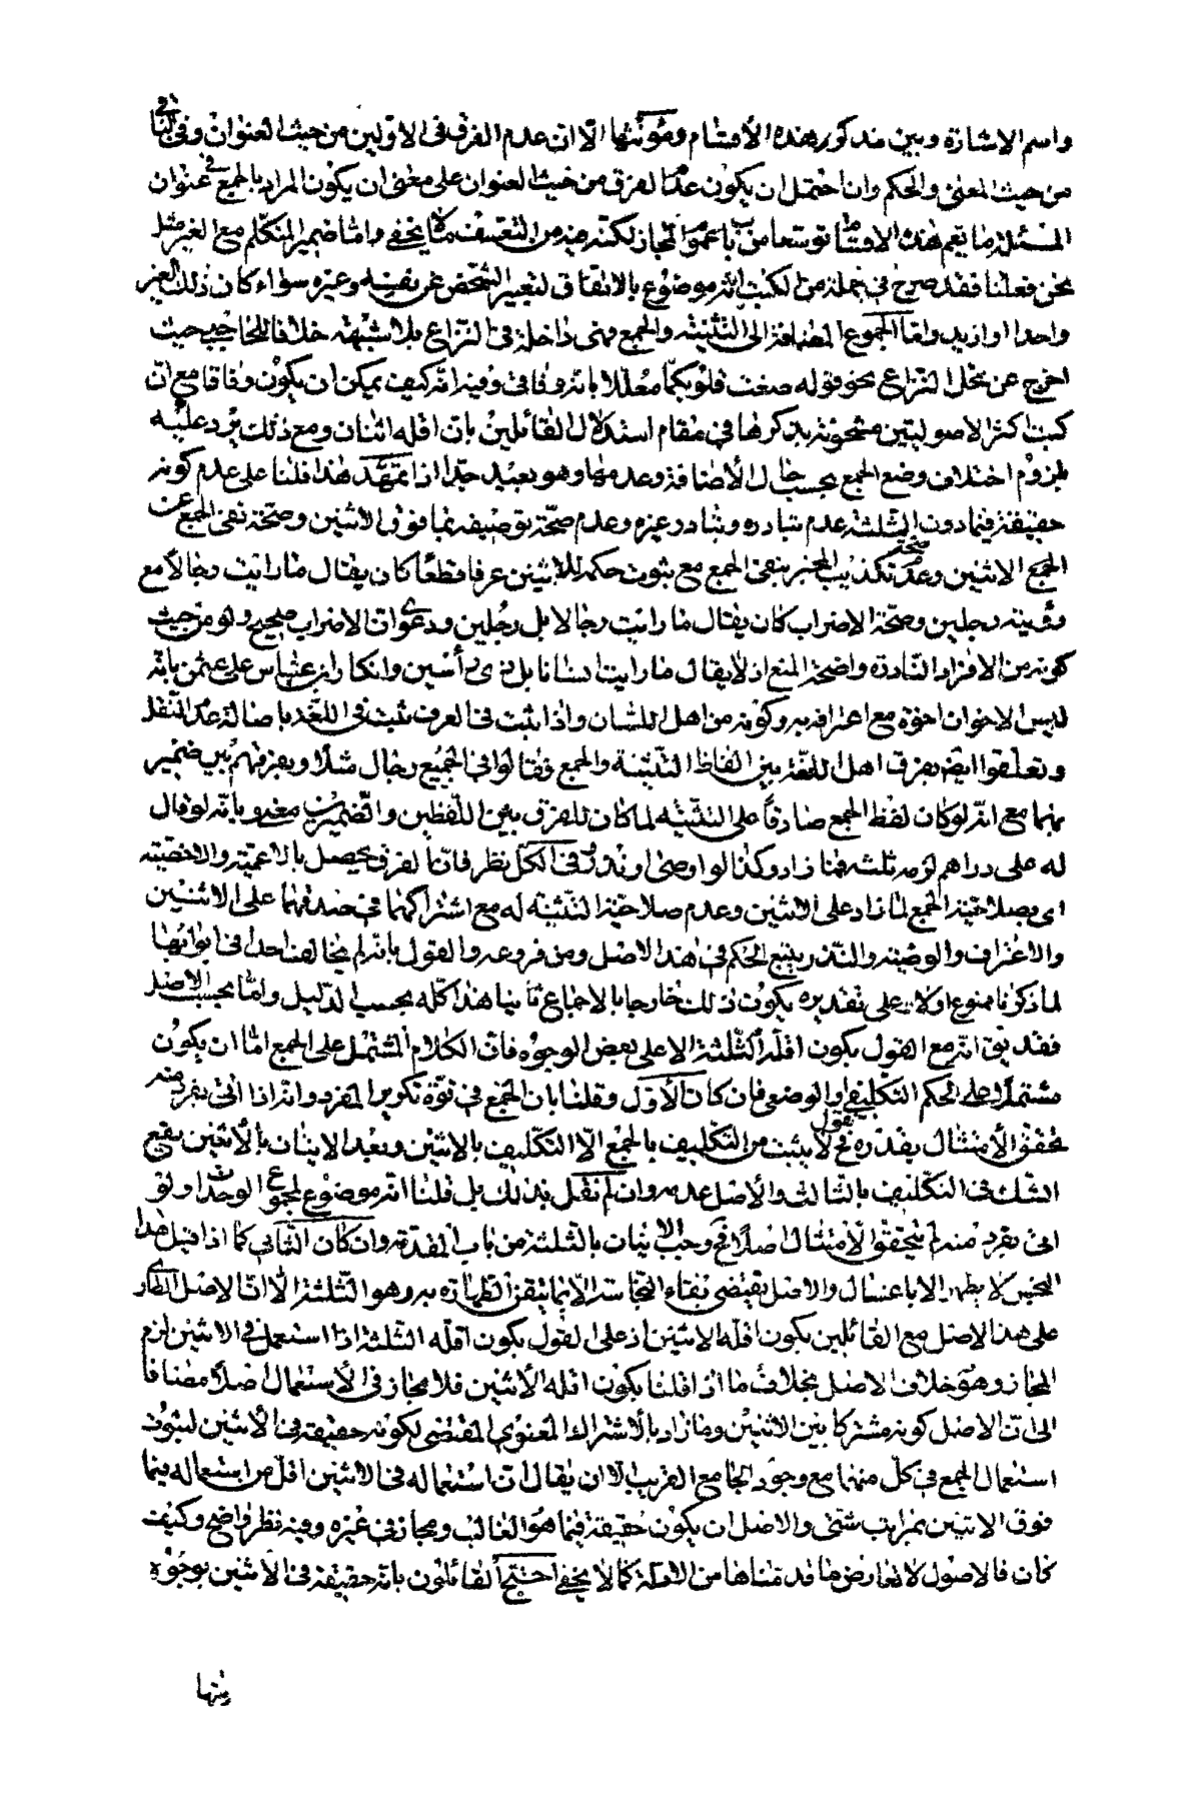 واسم الاشارة وبين مذكور هذه الأقسام ومؤنثها الا ان عدم الفرق فى الاولين من حيث العنوان وفى الثانى
من حيث المعنى والحكم وان احتمل ان يكون عدم الفرق من حيث العنوان على معنى ان يكون المراد بالجمع فى عنوان
المسئلة ما يعم هذه الاقسام توسعا من باب عموم المجاز لكنه فيه من التعسف ما لا يخفى واما ضمير المتكلم مع الغير مثل
نحن فعلنا فقد صرح فى جملة من الكتب انه موضوع بالاتفاق لتعبير الشخص عن نفسه وغيره سواء كان ذلك الغير
واحدا او ازيد واما الجموع المضافة الى التثنية والجمع فهى داخلة فى النزاع بلا شبهة خلافا للحاجبى حيث
اخرج عن محل النزاع نحو قوله صغت قلوبكما معللا بانه وفاقى وفيه انه كيف يمكن ان يكون وفاقا مع ان
كتب اكثر الاصوليين مشحونة بذكرها فى مقام استدلال القائلين بان اقله اثنان ومع ذلك يرد عليه
لزوم اختلاف وضع الجمع بحسب حال الأضافة وعدمها وهو بعيد جدا اذا تمهد هذا فلنا على عدم كونه
حقيقة فيما دون الثلثة عدم تبادره وتبادر غيره وعدم صحة توصيفه بما فوق الاثنين وصحة نفى الجمع عن
الجمع الاثنين وعدم صحة تكذيب المخبر بنفى الجمع مع ثبوت حكمه للاثنين عرفا قطعا كان يقال ما رايت رجالا مع
رؤيته رجلين وصحة الاضراب كان يقال ما رايت رجالا بل رجلين ودعوى ان الاضراب صحيح ولو من حيث
كونه من الافراد النادرة واضحة المنع اذ لا يقال ما رايت انسانا بل ذى رأسين وانكار ابن عباس على عثمن بانه
ليس الاخوان اخوة مع اعترافه به وكونه من اهل اللسان واذا ثبت فى العرف ثبت فى اللغة باصالة عدم النقل
وتعلقوا ايضا بفرق اهل اللغة بين الفاظ التثنية والجمع فقالوا فى الجميع رجال مثلا وبفرقهم بين ضمير
يهما مع انه لو كان لفظ الجمع صادقا على التثنية لما كان للفرق بين اللفظين والضميرين معنى وبانه لو قال
له على دراهم لزمه ثلثة فما زاد وكذا لو اوصى او نذر وفى الكل نظر فان الفرق يحصل بالاعمية والاخصية
اى بصلاحية الجمع لما زاد على الاثنين وعدم صلاحية التثنية له مع اشتراكهما فى صدقهما على الاثنين
والاعتراف والوصية والنذر يتبع الحكم فى هذا الاصل ومن فروعه والقول بانه لم يخالف احد فى ابوابها
لما ذكرنا ممنوع اولا وعلى تقديره يكون ذلك خارجا بالاجماع ثانيا هذا كله بحسب الدليل واما بحسب الاصل
فقد يق انه مع القول بكون اقله الثلثة الا على بعض الوجوه فان الكلام المشتمل على الجمع اما ان يكون
مشتملا على الحكم التكليفى او الوضعى فان كان الأول وقلنا بان الجمع فى قوة تكرير المفرد وانه اذا اتى بفرد منه
تحقق الأمتثال بقدره فح نقول لا يثبت من التكليف بالجمع الا التكليف بالاثنين وبعد الاتيان بالأثنين يقع
الشك فى التكليف بالثالث والأصل عدمه وان لم نقل بذلك بل قلنا انه موضوع لمجموع الوحدات ولو
اتى بفرد منه لم يتحقق الأمتثال اصلا فح وجب الاتيان بالثلثة من باب المقدمة وان كان الثانى كما اذا قيل هذا
النجس لا يطهر الا باغتسال والاصل يقتضى بقاء النجاسة الا بما يتيقن الطهارة به وهو الثلثة الا ان الاصل الطارى
على هذا الاصل مع القائلين بكون اقله الاثنين اذ على القول بكون اقله الثلثة اذا استعمل فى الاثنين لزم
المجاز وهو خلاف الاصل بخلاف ما اذا قلنا بكون اقله الأثنين فلا مجاز فى الأستعمال اصلا مضافا
الى ان الاصل كونه مشتركا بين الاثنين وما زاد بالاشتراك المعنوى المقتضى لكونه حقيقة فى الأثنين لثبوت
استعمال الجمع فى كل منهما مع وجود الجامع القريب الا ان يقال ان استعماله فى الاثنين اقل من استعماله فيما
فوق الاثنين بمراتب شتى والاصل ان يكون حقيقة فيما هو الغالب ومجاز فى غيره وفيه نظر واضح وكيف
كان فالاصول لا تعارض ما قدمناها من الادلة كما لا يخفى احتج القائلون بانه حقيقة فى الأثنين بوجوه
منها